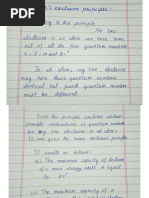 exclusion principle :
to this principle
No two
electrons in an atom can have same
set of all the four quantum numbers
n, l, m and s.
In an atom, any two electrons
may have three quantum numbers
identical but fourth quantum number
must be different.
This principle excludes certain
possible combinations of quantum numbers
for any two electrons in
is given the name exclusion principle.
It results as follows :
(i) The maximum capacity of electrons
of a main energy shell is equal
to 2n²
(ii) The maximum capacity of a